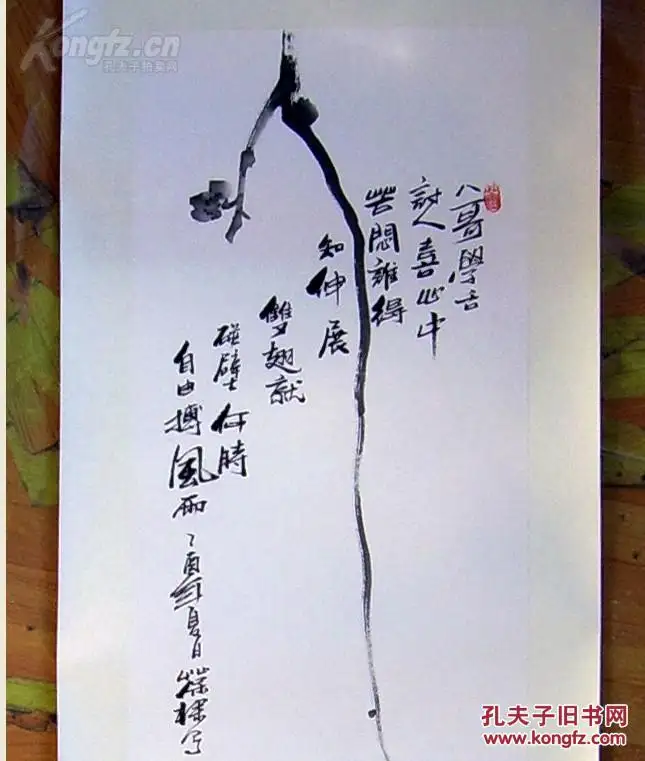 Kongfz.cn
孔夫子拍卖网
八哥學舌
討人喜心中
苦悶誰得
知伸展
雙翅就
碰壁何時
自由搏風雨乙酉年夏日
孔夫子旧书网
www.kongfz.com